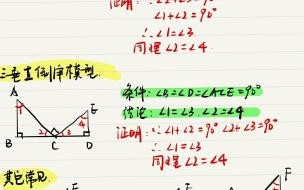 证明: ∵∠2+∠3=90°
∠1+∠2=90°
∴∠1=∠3
同理∠2=∠4.
三垂直倒角模型.
A
E
B
C
D
1
2
3
4
条件: ∠B=∠D=∠ACE=90°
结论: ∠1=∠3. ∠2=∠4
证明: ∵∠1+∠2=90° ∠2+∠3=90°
∴∠1=∠3
同理∠2=∠4
其它常见.
F